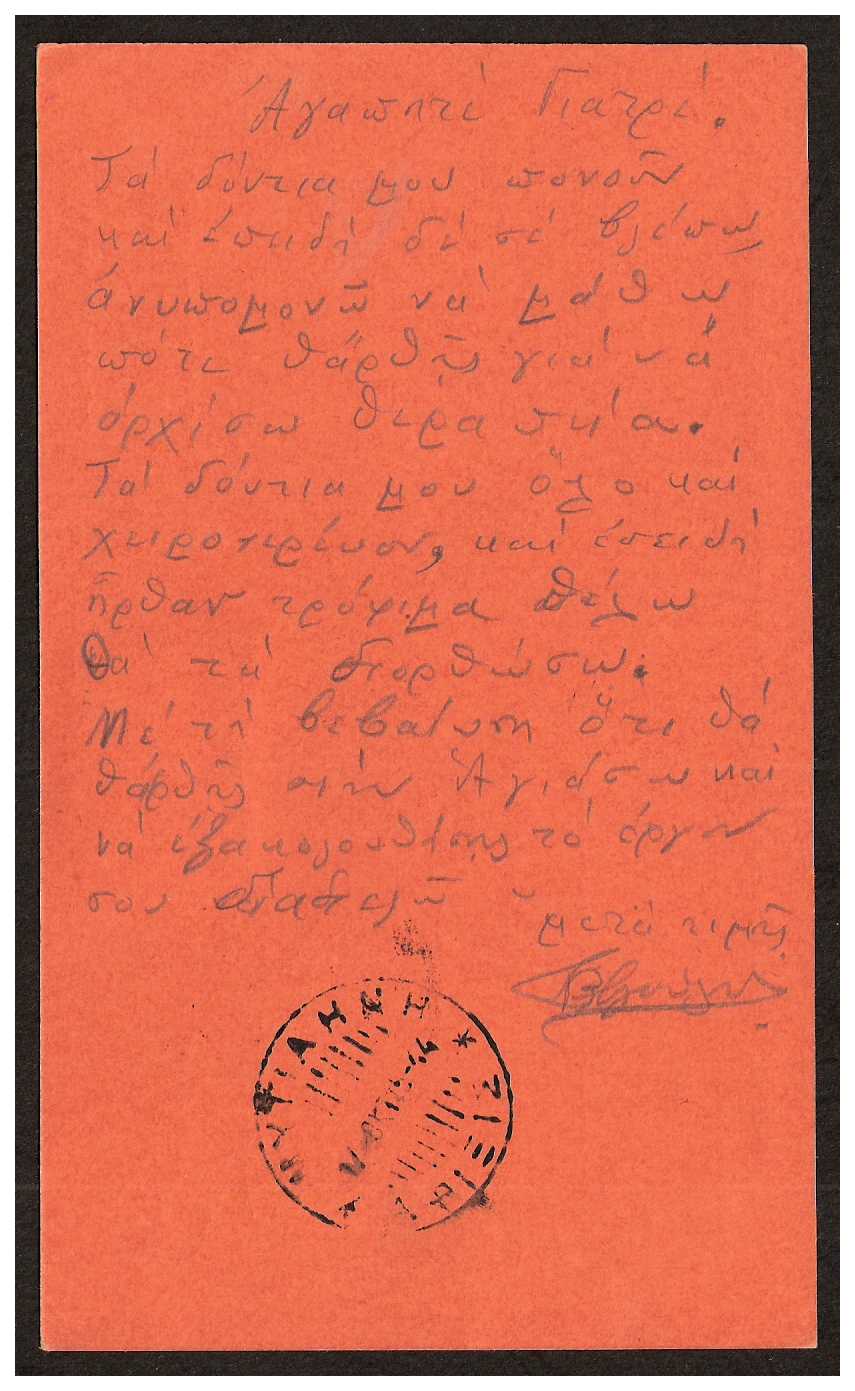 Ἀγαπητέ Γιατρέ.
Τά δόντια μου πονοῦν
καί ἐπειδή δέ σέ βλέπω
ἀνυπομονῶ νά μάθω
πότε θἄρθῆς γιά νά
ἀρχίσω θεραπεία.
Τά δόντια μου ὅλο καί
χειροτερεύουν, καί ἐπειδή
ἦρθαν τρόφιμα θέλω
νά τά διορθώσω.
Μέ τή βεβαίωση ὅτι θά
θἄρθῆς στήν Ἁγιάσω καί
νά ἐξακολουθήσης τό ἔργον
σου
μετά τιμῆς
ΜΥΤΙΛΗΝΗ *